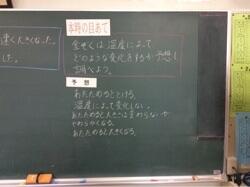 速く大きくなった。
した。
本時の目あて
金ぞくは温度によって
どのような変化をするか予想し
調べよう。
予想
あたためるととける。
温度によって変化しない。
あたためると大きさは変わらないが
やわらかくなる。
あたためると大きくなる。